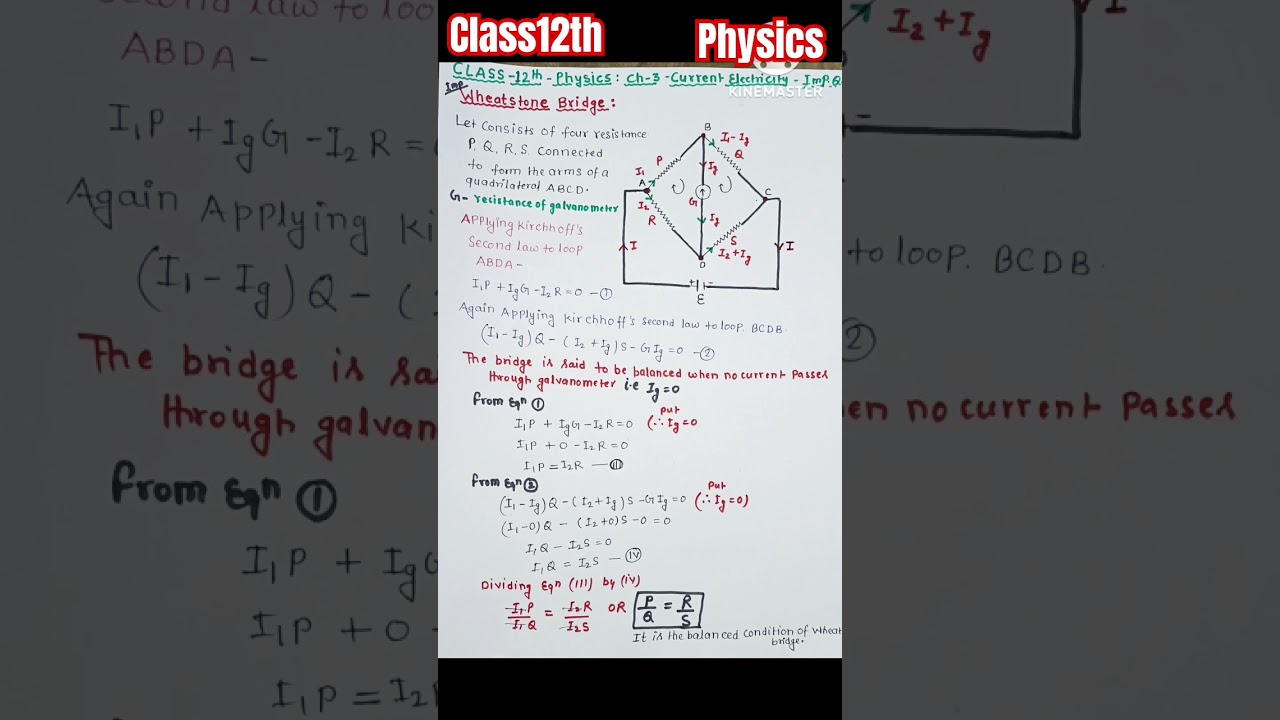 Class12th Physics
KINEMASTER
CLASS-12th-Physics: Ch-3-Current Electricity-Imp.Q
Imp Wheatstone Bridge:
Let consists of four resistance
P, Q, R, S. Connected
to form the arms of a
quadrilateral ABCD.
G- resistance of galvanometer
Applying Kirchhoff's
Second law to loop
ABDA-
I₁P + IgG - I₂R = 0 - ①
B
I₁-Ig
P
Q
I₁
Ig
A
C
G
I₂
Ig
R
S
I
I
D
I₂+Ig
+ -
E
Again Applying Kirchhoff's second law to loop. BCDB.
(I₁-Ig)Q - (I₂+Ig)S - GIg = 0 - ②
The bridge is said to be balanced when no current Passes
through galvanometer i.e Ig=0
from Eqn ①
I₁P + IgG - I₂R = 0 Put (∴ Ig=0
I₁P + 0 - I₂R = 0
I₁P = I₂R - (III)
from Eqn ②
(I₁-Ig)Q - (I₂+Ig)S - GIg = 0 Put (∴ Ig=0)
(I₁-0)Q - (I₂+0)S - 0 = 0
I₁Q - I₂S = 0
I₁Q = I₂S - (IV)
Dividing Eqn (III) by (iv)
I₁P/I₁Q = I₂R/I₂S OR P/Q = R/S
It is the balanced condition of Wheat
bridge.